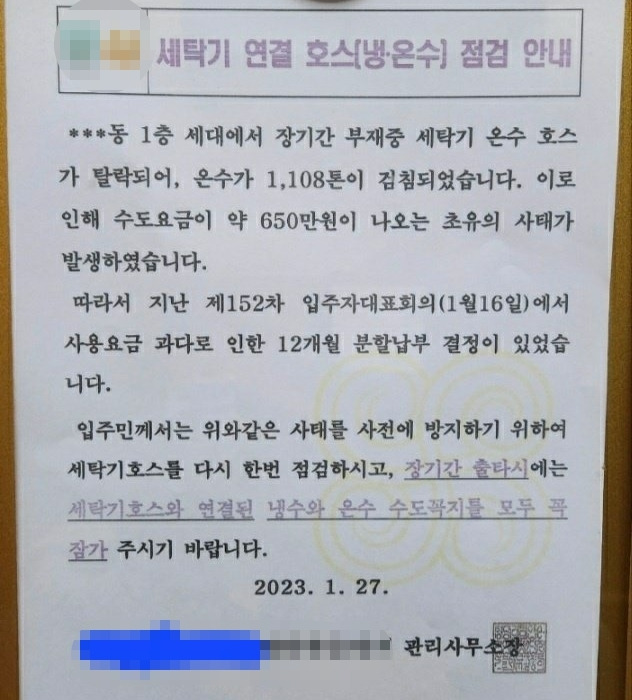 세탁기 연결 호스(냉·온수) 점검 안내
***동 1층 세대에서 장기간 부재중 세탁기 온수 호스
가 탈락되어, 온수가 1,108톤이 검침되었습니다. 이로
인해 수도요금이 약 650만원이 나오는 초유의 사태가
발생하였습니다.
따라서 지난 제152차 입주자대표회의(1월16일)에서
사용요금 과다로 인한 12개월 분할납부 결정이 있었습
니다.
입주민께서는 위와같은 사태를 사전에 방지하기 위하여
세탁기호스를 다시 한번 점검하시고, 장기간 출타시에는
세탁기호스와 연결된 냉수와 온수 수도꼭지를 모두 꼭
잠가 주시기 바랍니다.
2023. 1. 27.
관리사무소장